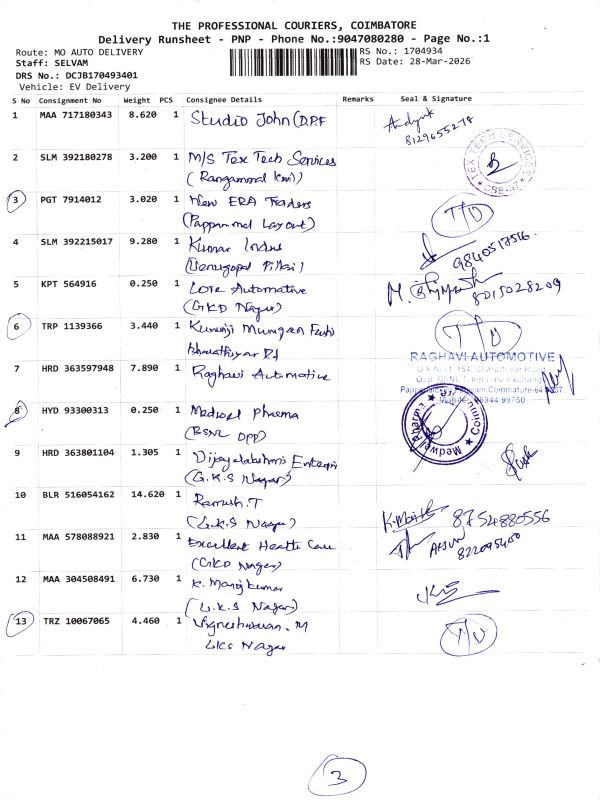 THE PROFESSIONAL COURIERS, COIMBATORE
Delivery Runsheet - PNP - Phone No.:9047080280 - Page No.:1
Route: MO AUTO DELIVERY
RS No.: 1704934
Staff: SELVAM
RS Date: 28-Mar-2026
DRS No.: DCJB170493401
Vehicle: EV Delivery
S No Consignment No Weight PCS Consignee Details Remarks Seal & Signature
1 MAA 717180343 8.620 1 Studio John (DPF
8129655278
2 SLM 392180278 3.200 1 M/S Tex Tech Services
(Rangammal Kovil)
TEX TECH SERVICES
CBE-37
3 PGT 7914012 3.020 1 New ERA Traders T/O
(Pappammal Layout)
4 SLM 392215017 9.280 1 Kumar Indus
(Venugopal Pillai)
9840517516.
5 KPT 564916 0.250 1 Lore Automotive
(GKD Nagar)
8015028209
6 TRP 1139366 3.440 1 Kurunji Murugan T/O
Bharathiyar Rd
7 HRD 363597948 7.890 1 Raghavi Automotive
RAGHAVI AUTOMOTIVE
8 HYD 93300313 0.250 1 Medwell Pharma
(BSNL OPP)
Medwell Pharma
9 HRD 363801104 1.305 1 Vijayalakshmi Enterpri
(G.K.S Nagar)
10 BLR 516054162 14.620 1 Ramesh.T
(G.K.S Nagar)
8754880556
11 MAA 578088921 2.830 1 Excellent Health Care
(GKD Nagar)
12 MAA 304508491 6.730 1 K. Manojkumar
(G.K.S Nagar)
13 TRZ 10067065 4.460 1 Vigneshwaran.M T/O
GKS Nagar
3